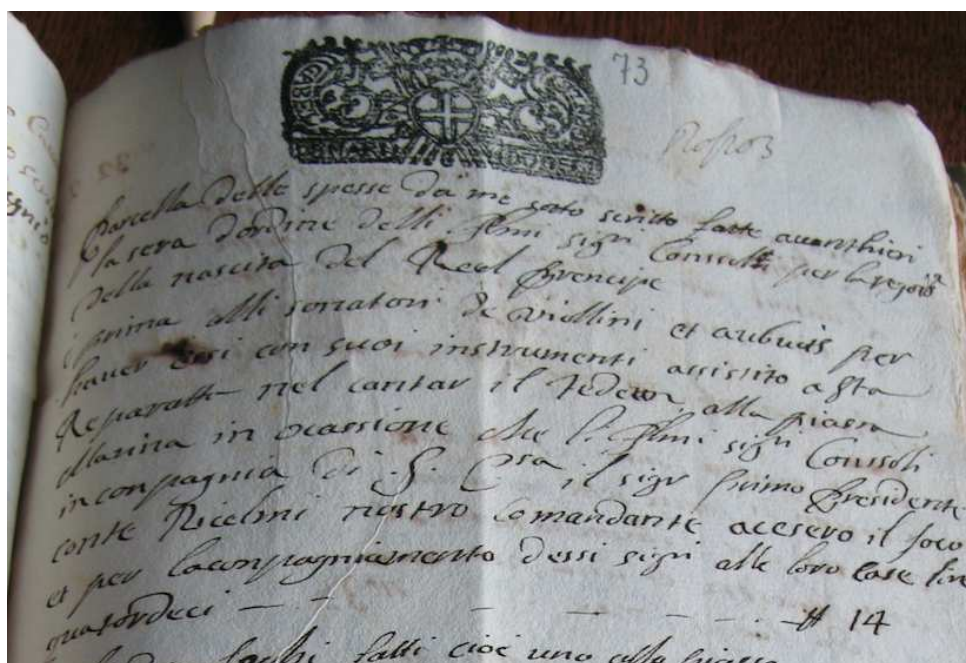 73
Parcella delle spesse da me sotto scritto fatte avanthieri
la sera d'ordine delli Illmi sigri Consolli per la
della nascita del Real Prencipe
e prima alli sonatori de viollini et aubuis per
haver essi con suoi instrumenti assistito a Sta
Reparatta nel cantar il Tedeum, alla piassa
Marina in ocassione che l'Illmi sigri Consoli
in conpagnia di S. Ecsa il sigr primo Presidente
conte Ricelmi nostro Comandante acesero il foco
et per l'aconpagniamento d'essi sigri alle loro case lire
quatordeci — — — — # 14
fochi fatti cioe uno alla piassa